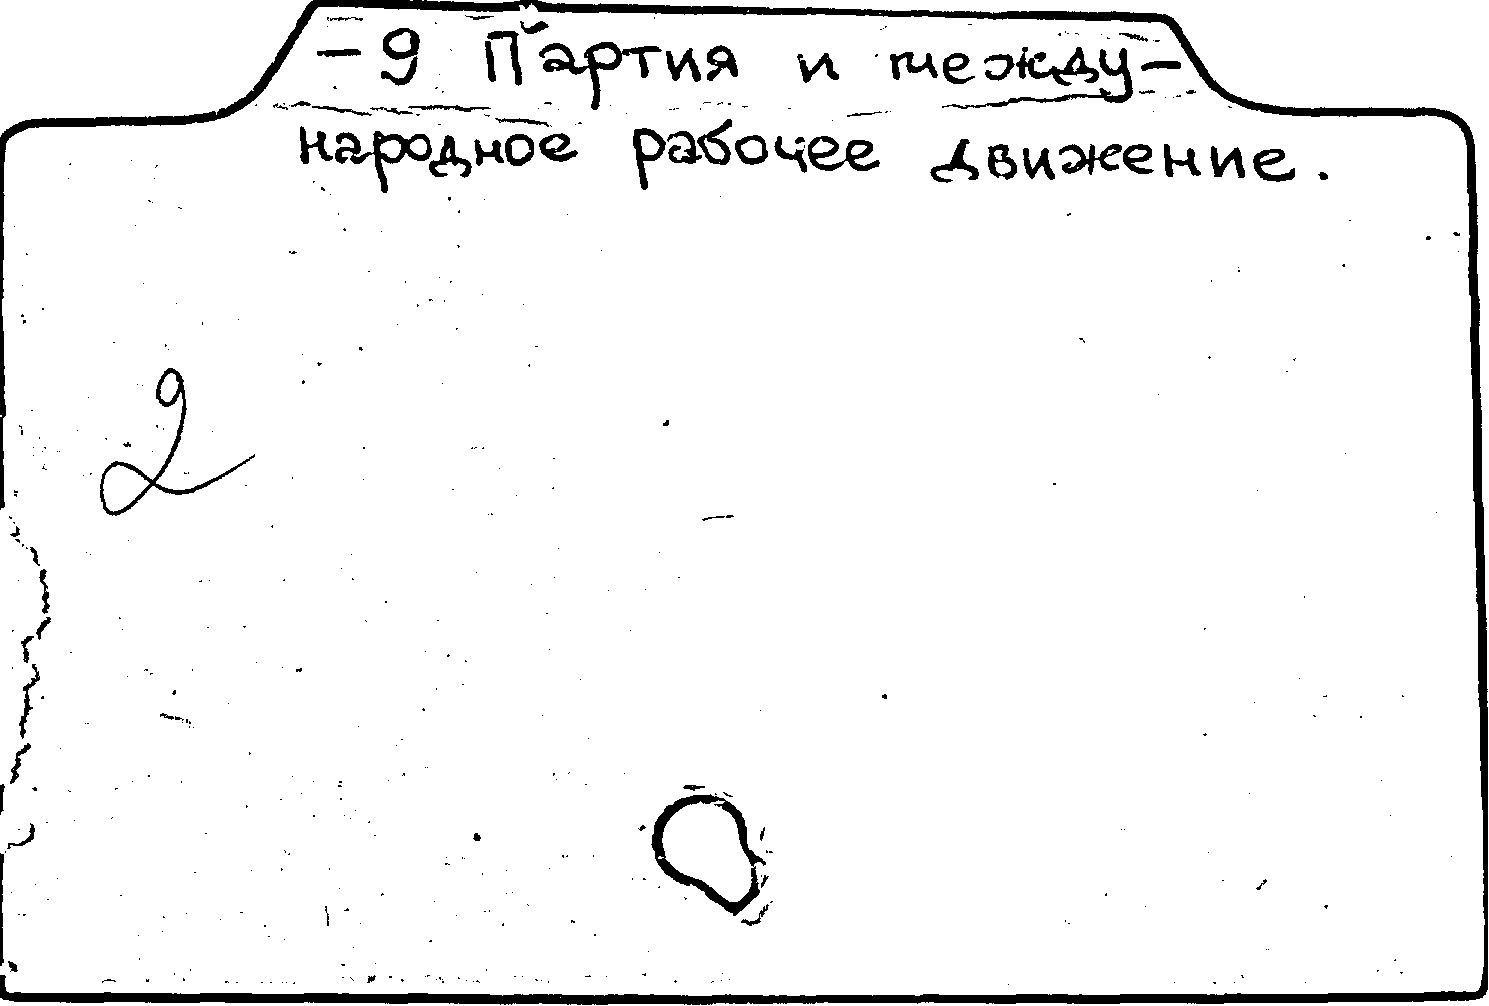 -9 Партия и между-
народное рабочее движение.
2